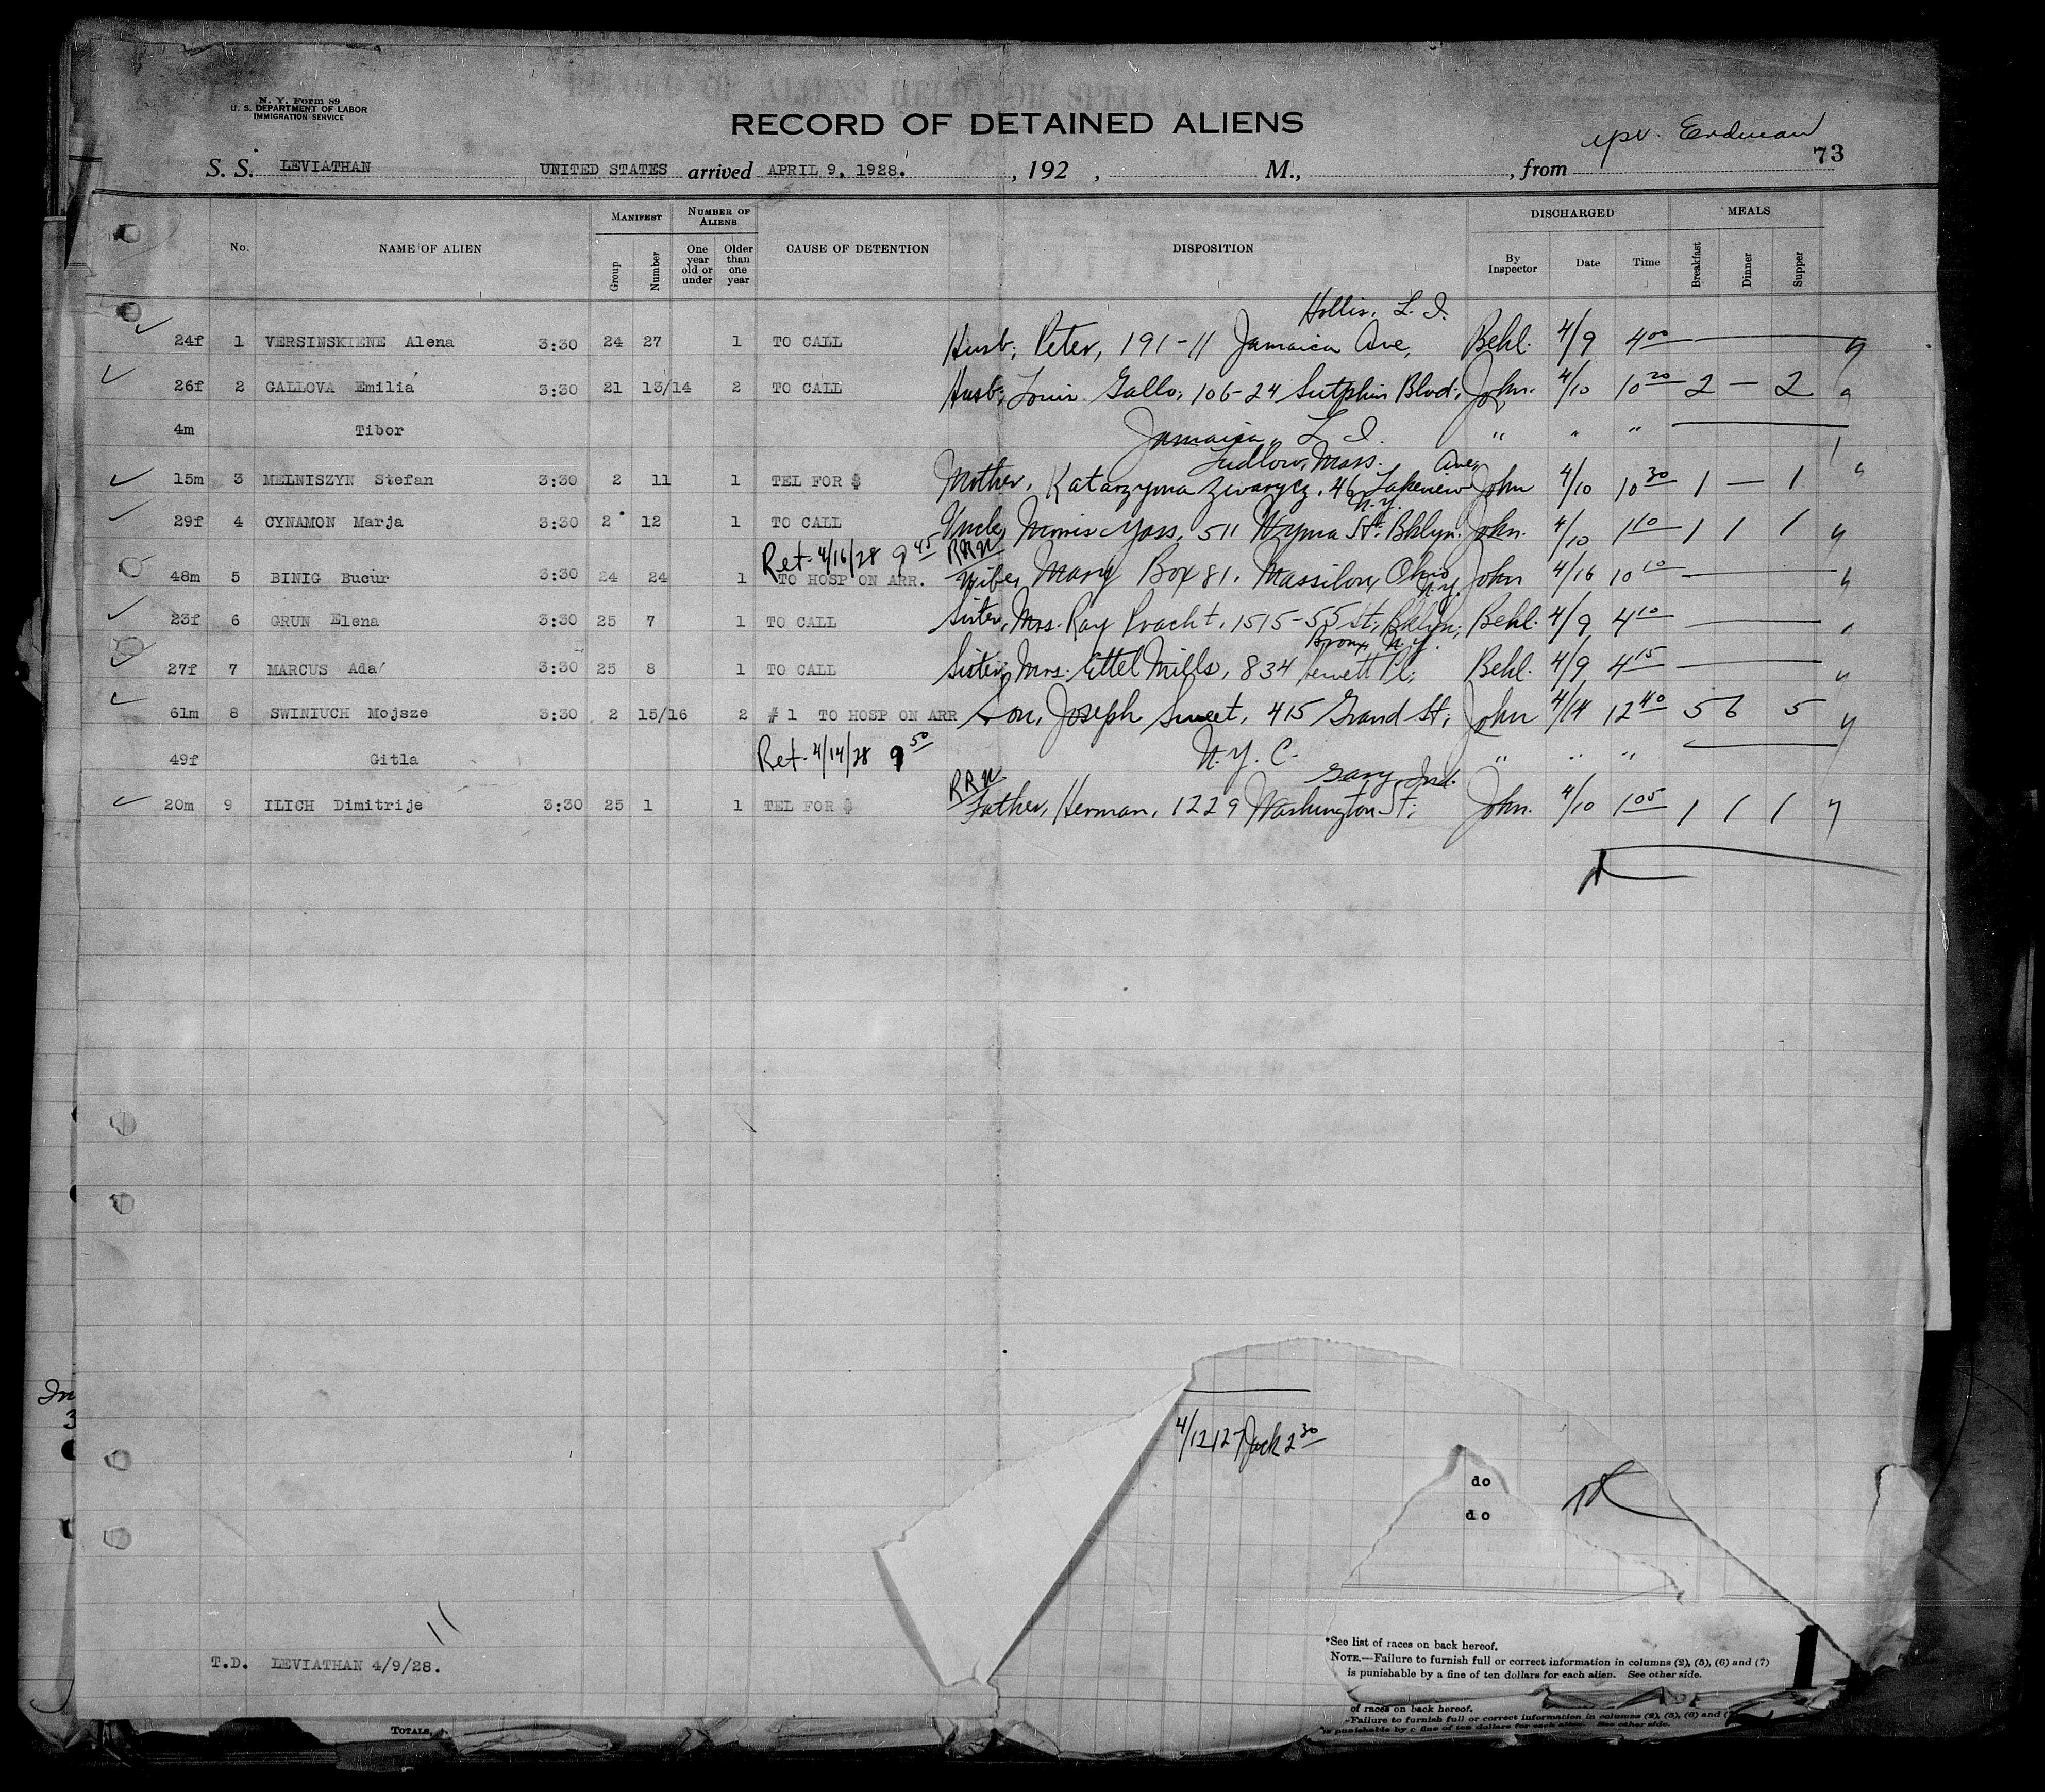 N. Y. Form 89
U. S. DEPARTMENT OF LABOR
IMMIGRATION SERVICE
RECORD OF DETAINED ALIENS
73
S. S. LEVIATHAN UNITED STATES arrived APRIL 9, 1928. , 192 , M., , from
No. NAME OF ALIEN MANIFEST Group Number NUMBER OF ALIENS One year old or under Older than one year CAUSE OF DETENTION DISPOSITION DISCHARGED By Inspector Date Time MEALS Breakfast Dinner Supper
Hollis, L. I.
24f 1 VERSINSKIENE Alena 3:30 24 27 1 TO CALL Husb, Peter, 191-11 Jamaica Ave, Behl. 4/9 4 00
26f 2 GALLOVA Emilia 3:30 21 13/14 2 TO CALL Husb, Louis Gallo, 106-24 Sutphin Blvd, John. 4/10 10 20 2 — 2
4m Tibor Jamaica, L. I. " " "
Ludlow, Mass. Ave,
15m 3 MELNISZYN Stefan 3:30 2 11 1 TEL FOR $ Mother, Katarzyna Zwarycz, 46 Lakeview John 4/10 10 30 1 — 1
N.Y.
29f 4 CYNAMON Marja 3:30 2 12 1 TO CALL Uncle, Morris Yass, 511 St. Bklyn. John. 4/10 1 10 1 1 1
Ret. 4/16/28 9 45 RRN
48m 5 BINIG Bucur 3:30 24 24 1 TO HOSP ON ARR. Wife, Mary Box 81, Massilon, Ohio John 4/16 10 10
N.Y.
23f 6 GRUN Elena 3:30 25 7 1 TO CALL Sister, Mrs. Ray Pracht, 1515-55 St, Bklyn, Behl. 4/9 4 10
Bronx, N.Y.
27f 7 MARCUS Ada 3:30 25 8 1 TO CALL Sister, Mrs. Ettel Mills, 834 Hewett Pl, Behl. 4/9 4 15
61m 8 SWINIUCH Mojsze 3:30 2 15/16 2 # 1 TO HOSP ON ARR Son, Joseph Sweet, 415 Grand St, John 4/14 12 40 5 6 5
49f Gitla Ret. 4/14/28 9 50 N.Y.C. " " "
RRN Gary, Ind.
20m 9 ILICH Dimitrije 3:30 25 1 1 TEL FOR $ Father, Herman, 1229 Washington St, John. 4/10 1 05 1 1 1
4/12/27 Jack 2 30
do
do
*See list of races on back hereof.
NOTE.—Failure to furnish full or correct information in columns (2), (5), (6) and (7)
is punishable by a fine of ten dollars for each alien. See other side.
T.D. LEVIATHAN 4/9/28.
of races on back hereof.
-Failure to furnish full or correct information in columns (2), (5), (6) and (
is punishable by a fine of ten dollars for each alien. See other side.
TOTALS,